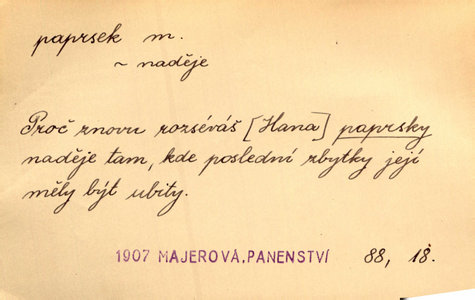 paprsek m.
~ naděje
Proč znovu rozséváš [Hana] paprsky
naděje tam, kde poslední zbytky její
měly být ubity.
1907 MAJEROVÁ, PANENSTVÍ 88, 18.